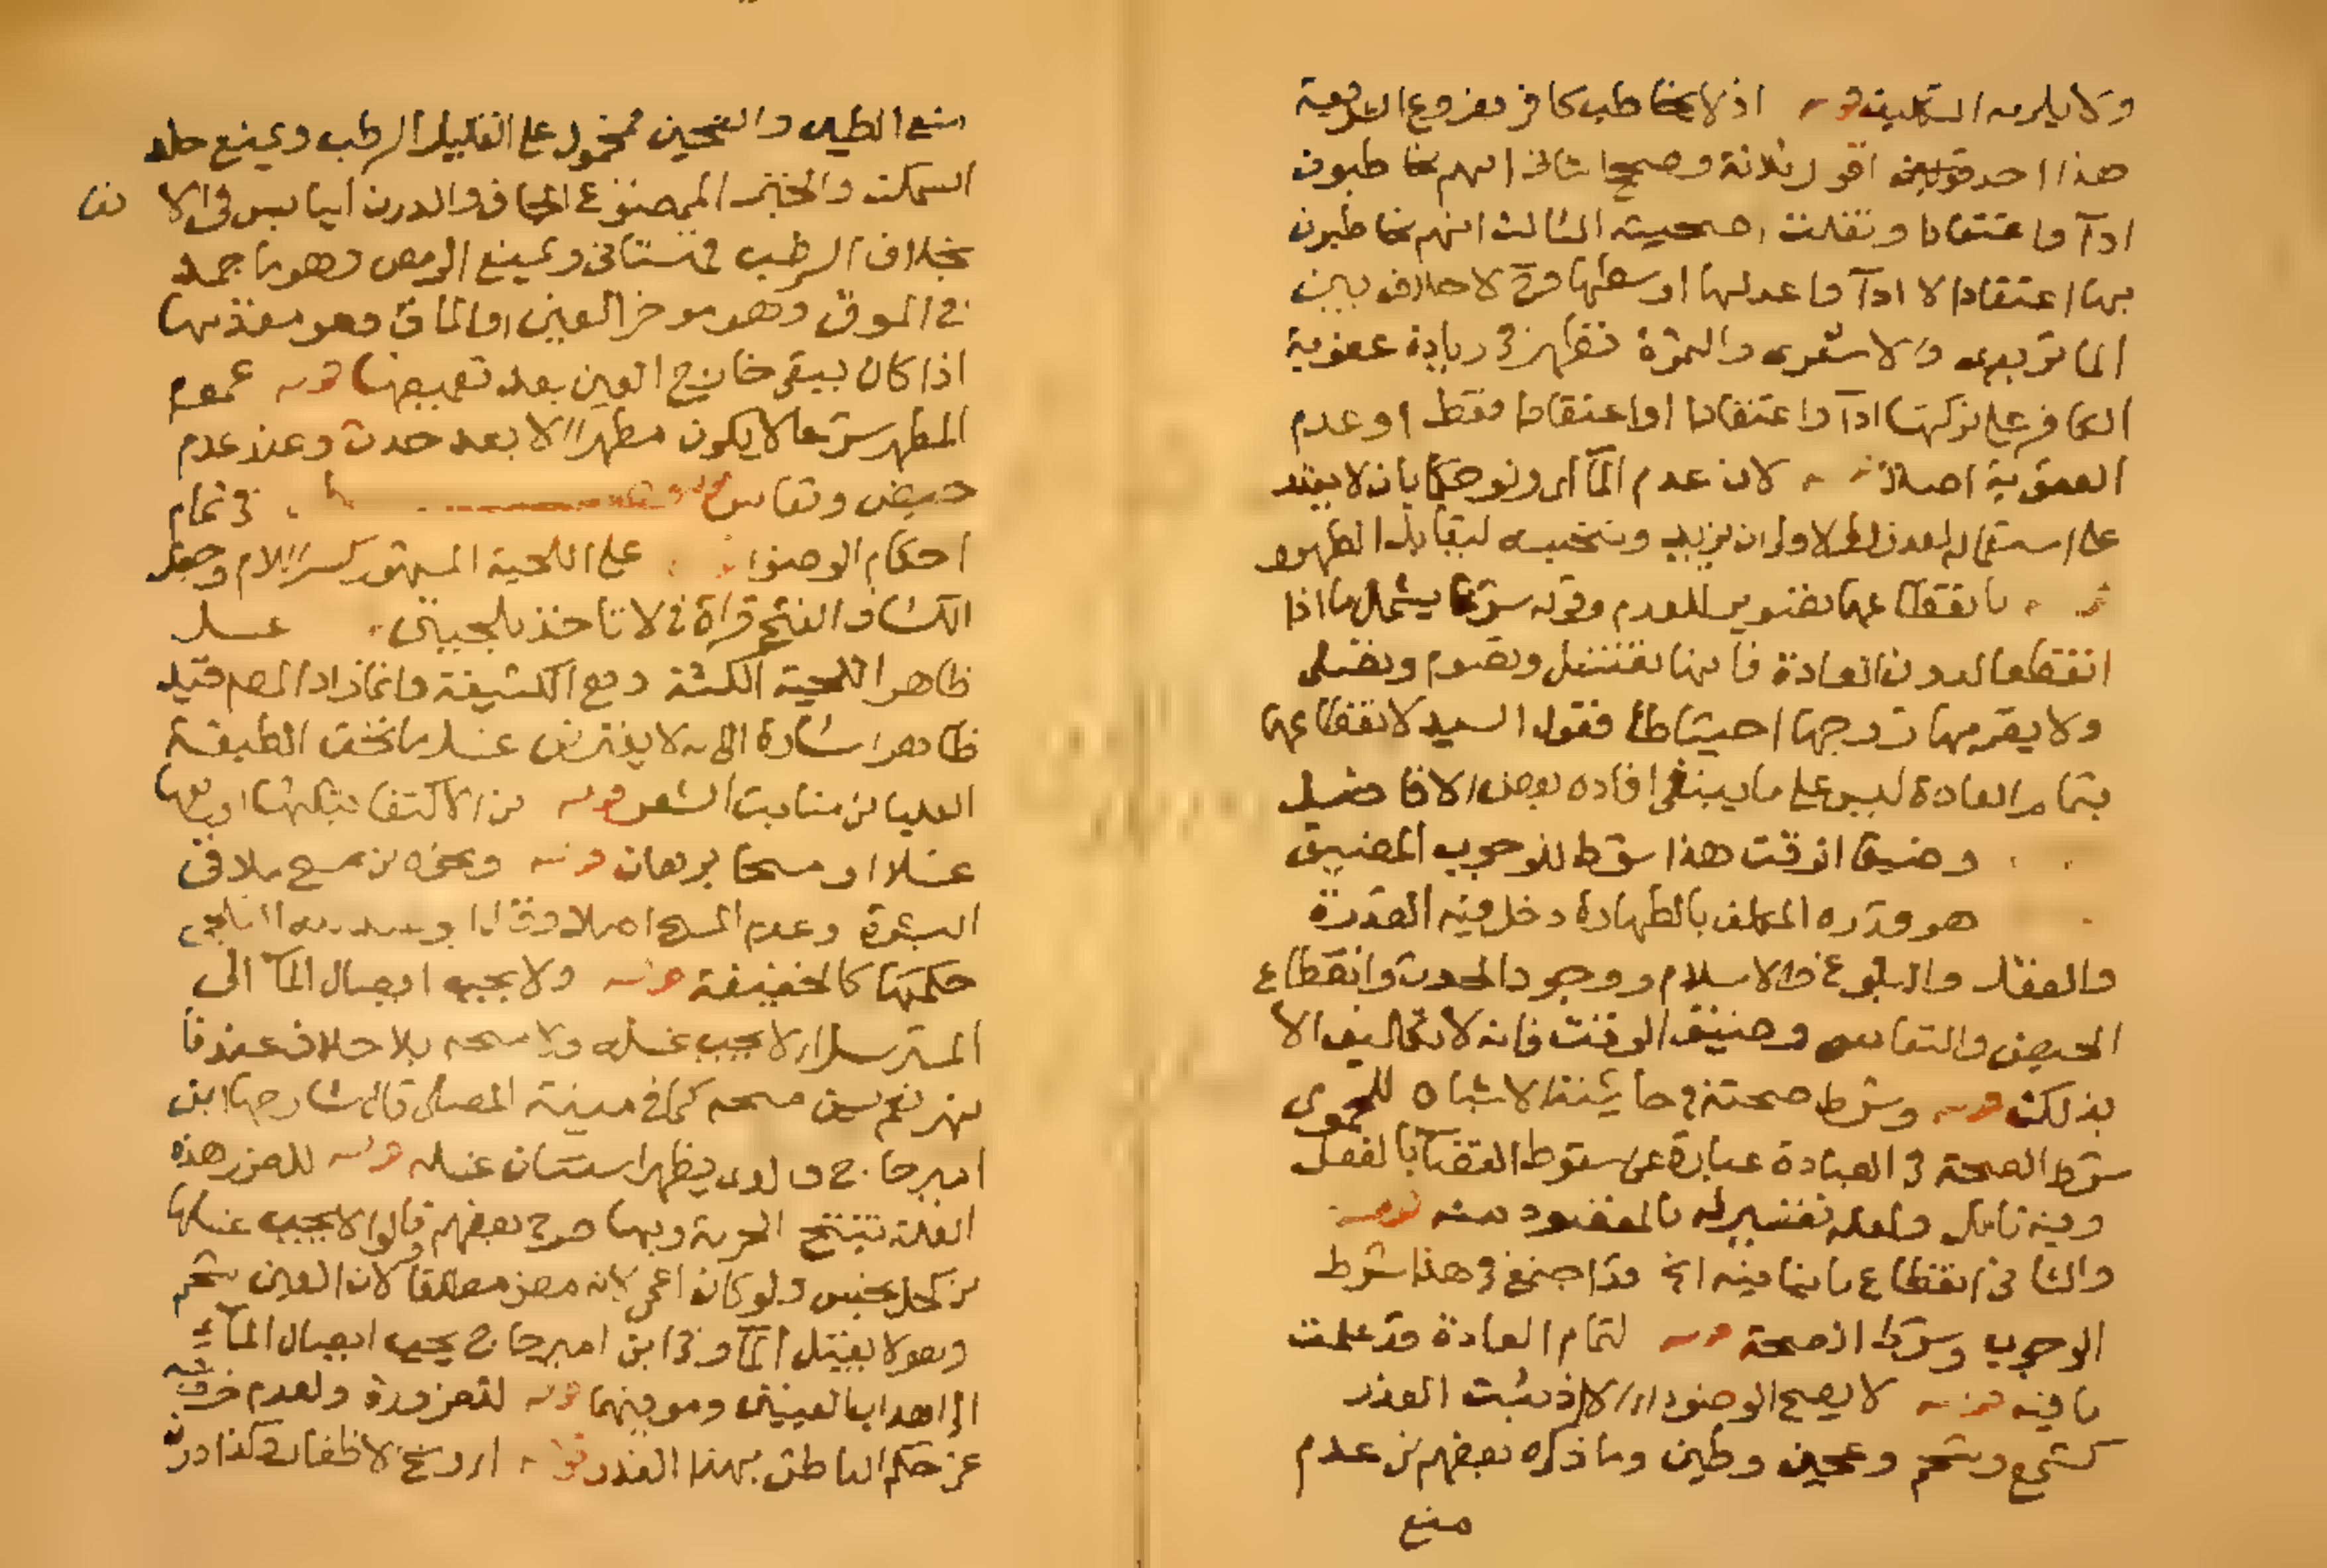 ولا يلزمه التكليف قوله اذ لا يخاطب كافر بفروع الشريعة
هذا احد قولين اقول ثلاثة وصحح الثاني انهم مخاطبون
ادآ واعتقادا ونقلت صحيته الثالث انهم مخاطبون
بها اعتقادا لا ادآ واعدلها اوسطها وح لا خلاف بين
الماتريدى والاشعرى والثمرة تظهر فى زيادة عقوبة
الكافر على تركها ادآ واعتقادا او اعتقادا فقط او عدم
العقوبة اصلا لان عدم المآ اى ولو حكما بان لا يقتدر
على استعماله
بانقطاعها تصوير للعدم وقوله شرعا يشمل ما اذا
انقطعا لدون العادة فانها تغتسل وتصوم وتصلى
ولا يقربها زوجها احتياطا فقول السيد لانقطاعها
بتمام العادة ليس على ما ينبغى افاده بعض الافاضل
وضيق الوقت هذا شرط للوجوب المضيق
هو قدره المكلف بالطهارة دخل فيه القدرة
والعقل والبلوغ والاسلام ووجود الحدث وانقطاع
الحيض والنفاس وضيق الوقت فانه لا تكليف الا
بذلك قوله وشرط صحته فى حاشية الاشباه للحموى
شرط الصحة فى العبادة عبارة عن سقوط القضآ بالفعل
وفيه تامل ولعله تفسير له بالمقصود منه قوله
والثانى انقطاع ما ينافيه الخ قد اجتمع فى هذا شرط
الوجوب وشرط الصحة قوله لتمام العادة قد علمت
ما فيه قوله لا يصح الوضوء اى الا اذا ثبت العذر
كشمع وشحم وعجين وطين وما ذكره بعضهم من عدم
منع
منع الطين والعجين محمول على القليل الرطب ويمنع جلد
السمك والخبز الممضوغ الجاف والدرن اليابس فى الا نف
بخلاف الرطب قهستانى ويمنع الرمص وهو ما جمد
فى الموق وهو موخر العين او الماق وهو مقدمها
اذا كان يبقى خارج العين بعد تغميضها قوله عموم
المطهر شرعا لا يكون مطهرا الا بعد حدث وعند عدم
حيض ونفاس فى تمام
احكام الوضوء على اللحية المشهور كسر اللام وجعل
الكشاف الفتح قراة فى لا تاخذ بلحيتى غسل
ظاهر اللحية الكثة دمع الكثيفة وانما زاد المص قيد
ظاهر اشارة الى انه لا يفترض غسل ما تحت الطبقة
العليا من منابت الشعر قوله من الاكتفا بثلثها او ربعها
غسلا او مسحا برهان قوله ونحوه من مسح ملاقى
البشرة وعدم المسح اصلا
حكمها كالخفيفة قوله ولا يجب ايصال المآ الى
المسترسل اى لا يجب غسله ولا مسحه بلا خلاف عندنا
نهر نعم يسن مسحه كما فى منية المصلى قال شارحها ابن
امير حاج والذى يظهر استنان غسله قوله للضرر هذه
العلة تنتج الحرمة وبها صرح بعضهم قالوا لا يجب غسلها
من كحل نجس ولو كان اعمى لانه مضر مطلقا ولان العين شحم
وهو لا يقبل المآ وفى ابن امير حاج يجب ايصال المآء
الى اهداب العينين وموقيهما قوله للضرورة ولعدم خروجه
عن حكم الباطن بهذا القدر قوله اى وسخ الاظفار وكذا درن